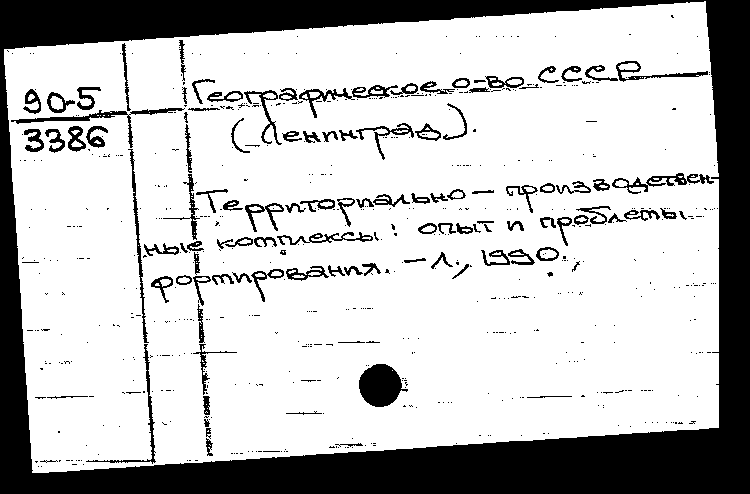 90-5
3386
Географическое о-во СССР
(Ленинград).
Территориально-производствен-
ные комплексы: опыт и проблемы
формирования. - Л., 1990.,